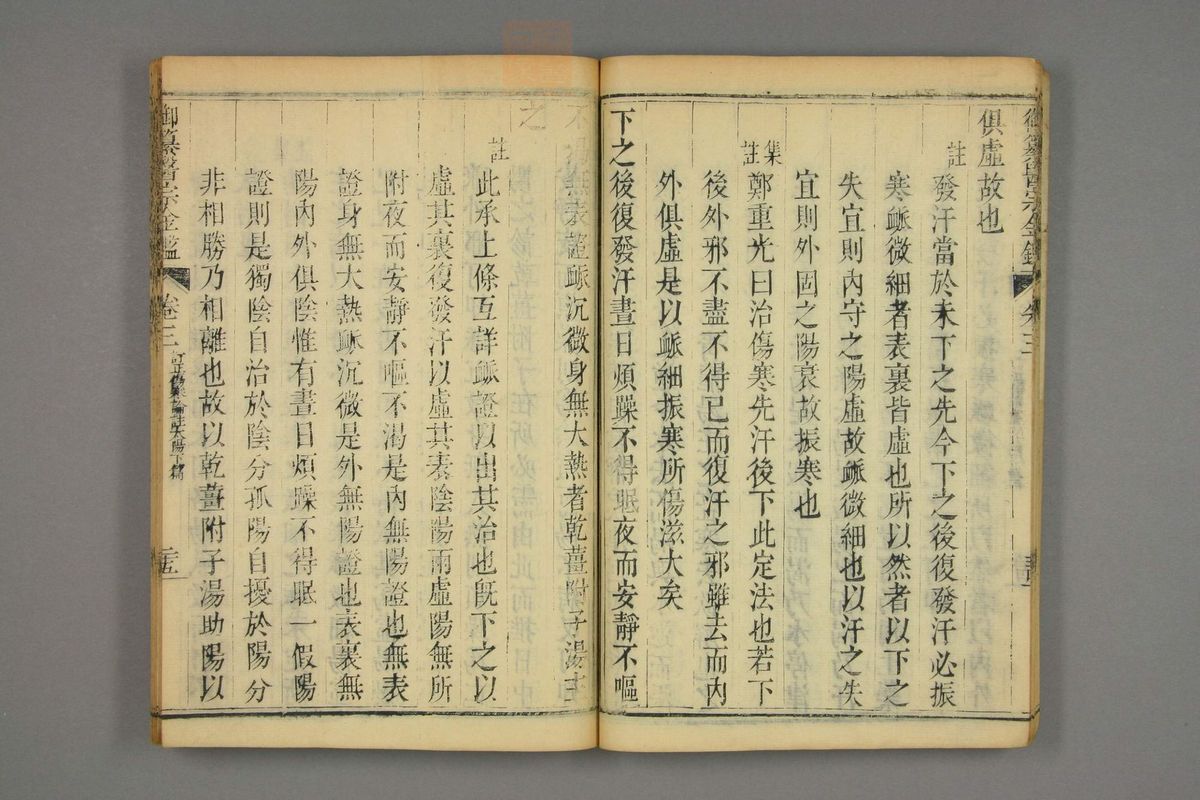 俱虛故也
註
發汗當於未下之先今下之後復發汗必振
寒脈微細者表裏皆虛也所以然者以下之
失宜則內守之陽虛故脈微細也以汗之失
宜則外固之陽衰故振寒也
集註
鄭重光曰治傷寒先汗後下此定法也若下
後外邪不盡不得已而復汗之邪雖去而內
外俱虛是以脈細振寒所傷滋大矣
下之後復發汗晝日煩躁不得眠夜而安靜不嘔
不渴無表證脈沉微身無大熱者乾薑附子湯主
之
註
此承上條互詳脈證以出其治也旣下之以
虛其裏復發汗以虛其表陰陽兩虛陽無所
附夜而安靜不嘔不渴是內無陽證也無表
證身無大熱脈沉微是外無陽證也表裏無
陽內外俱陰惟有晝日煩躁不得眠一假陽
證則是獨陰自治於陰分孤陽自擾於陽分
非相勝乃相離也故以乾薑附子湯助陽以
御纂醫宗金鑑
卷三
訂正傷寒論註太陽下篇